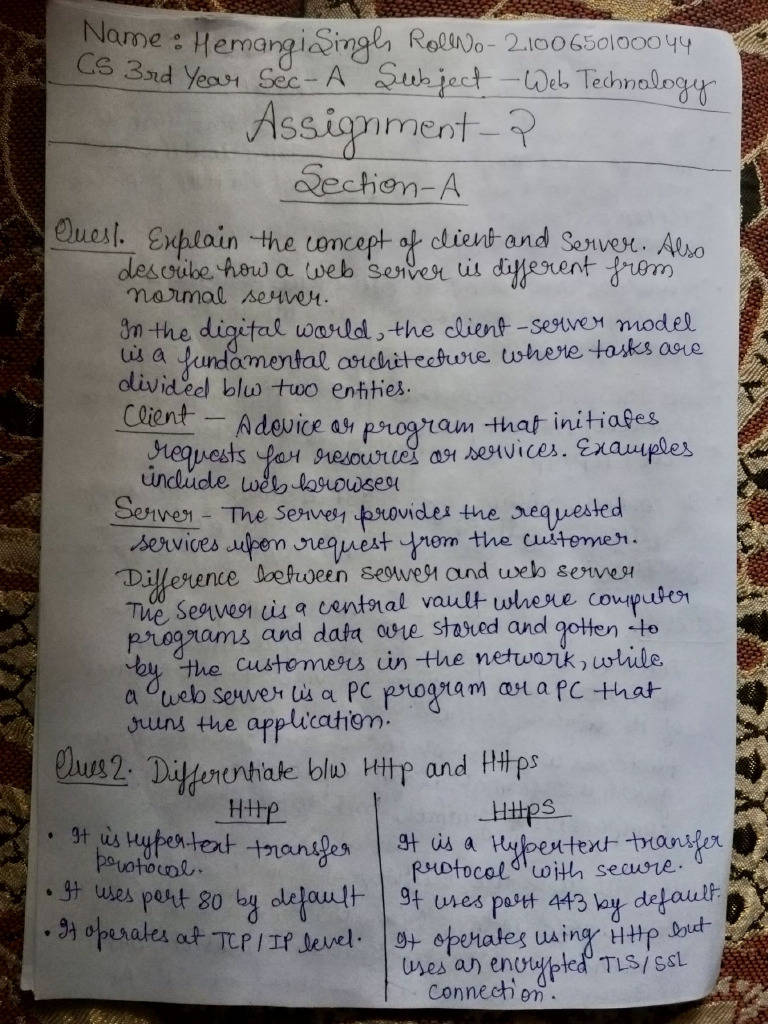 Name : Hemangi Singh RollNo - 2100650100044
CS 3rd Year Sec-A Subject - Web Technology
Assignment-2
Section-A
Ques1. Explain the concept of client and Server. Also
describe how a web server is different from
normal server.
In the digital world, the client-server model
is a fundamental architecture where tasks are
divided b/w two entities.
Client - A device or program that initiates
requests for resources or services. Examples
include web browser
Server - The Server provides the requested
services upon request from the customer.
Difference between server and web server
The Server is a central vault where computer
programs and data are stored and gotten to
by the customers in the network, while
a web server is a PC program or a PC that
runs the application.
Ques2. Differentiate b/w Http and Https
Http
• It is Hypertext transfer
protocol.
• It uses port 80 by default
• It operates at TCP/IP level.
Https
It is a Hypertext transfer
protocol with secure.
It uses port 443 by default.
It operates using Http but
uses an encrypted TLS/SSL
connection.